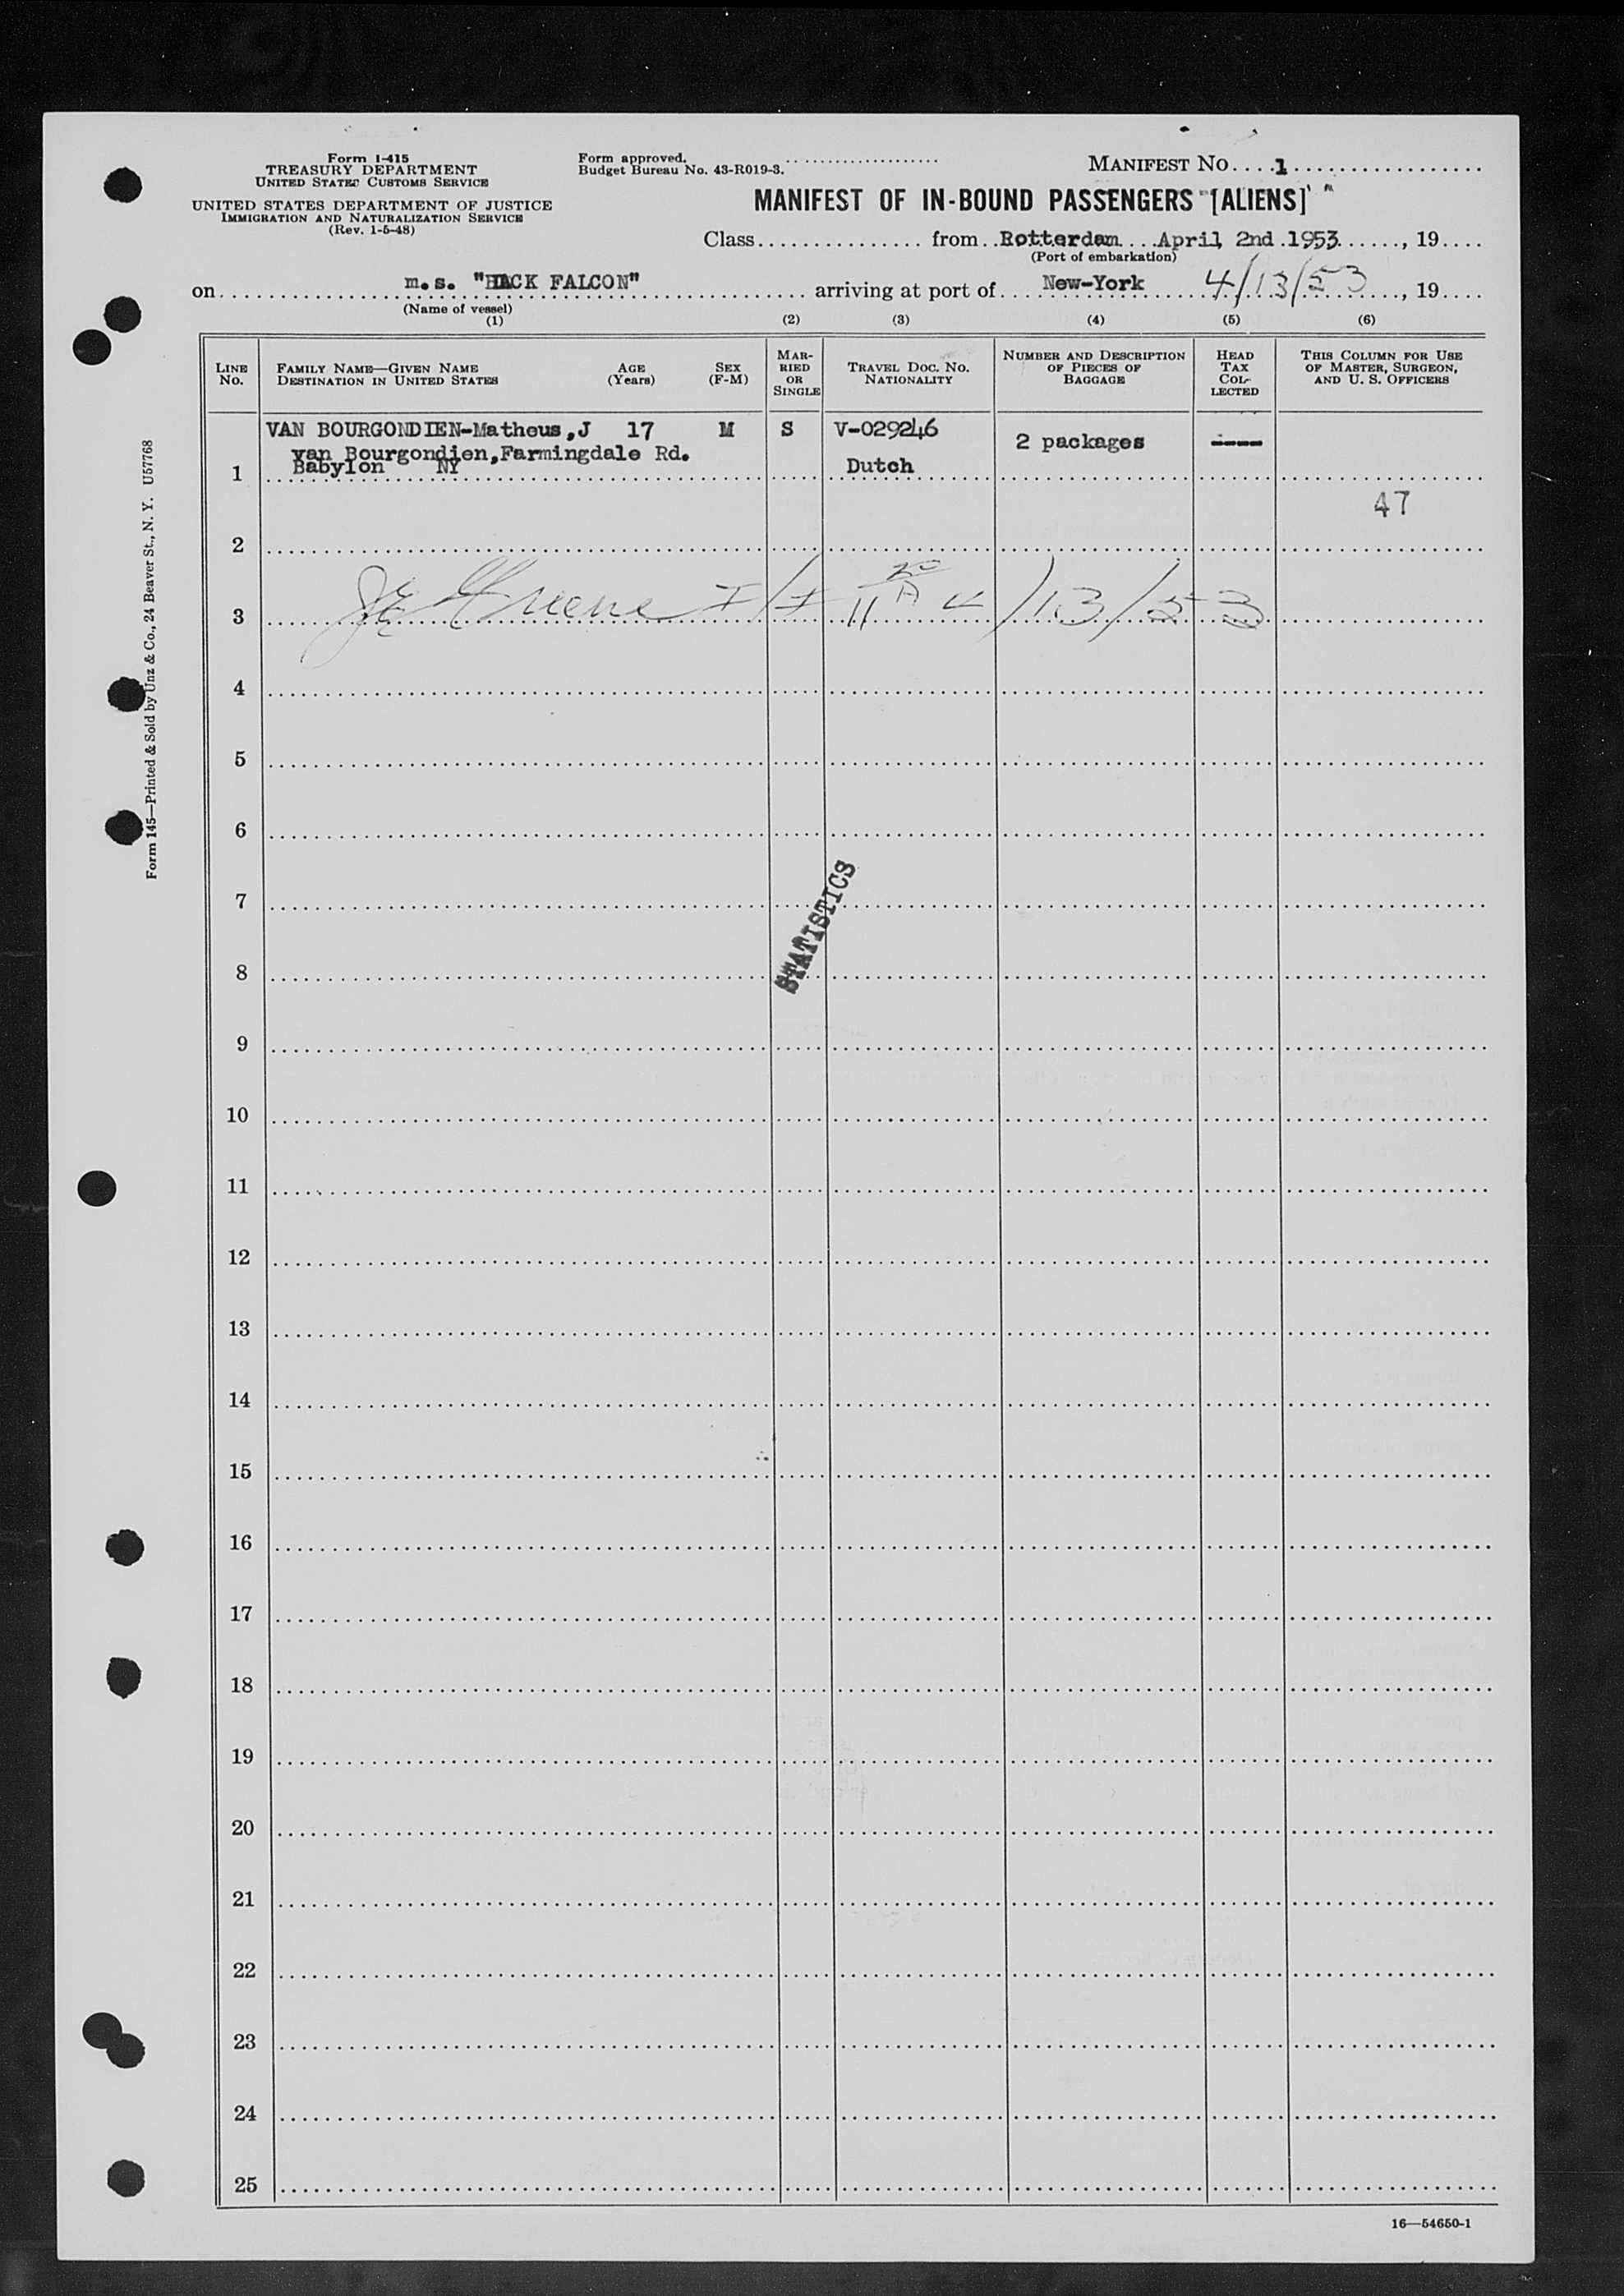 Form I-415
TREASURY DEPARTMENT
UNITED STATES CUSTOMS SERVICE
UNITED STATES DEPARTMENT OF JUSTICE
IMMIGRATION AND NATURALIZATION SERVICE
(Rev. 1-5-48)
Form approved.
Budget Bureau No. 43-R019-3.
MANIFEST NO. 1
MANIFEST OF IN-BOUND PASSENGERS [ALIENS]
Class from Rotterdam April 2nd 1953, 19
(Port of embarkation)
on m.s. "HACK FALCON" arriving at port of New-York 4/13/53, 19
(Name of vessel)
(1) (2) (3) (4) (5) (6)
LINE NO.
FAMILY NAME—GIVEN NAME
DESTINATION IN UNITED STATES
AGE (Years)
SEX (F-M)
MARRIED OR SINGLE
TRAVEL DOC. NO.
NATIONALITY
NUMBER AND DESCRIPTION OF PIECES OF BAGGAGE
HEAD TAX COLLECTED
THIS COLUMN FOR USE OF MASTER, SURGEON, AND U. S. OFFICERS
VAN BOURGONDIEN-Matheus,J 17 M S V-029246 2 packages ----
van Bourgondien,Farmingdale Rd.
1 Babylon NY Dutch
47
2
3 Greene 4/13/53
4
5
6
7
STATISTICS
8
9
10
11
12
13
14
15
16
17
18
19
20
21
22
23
24
25
16—54650-1
Form 145—Printed & Sold by Unz & Co., 24 Beaver St., N. Y. U57768